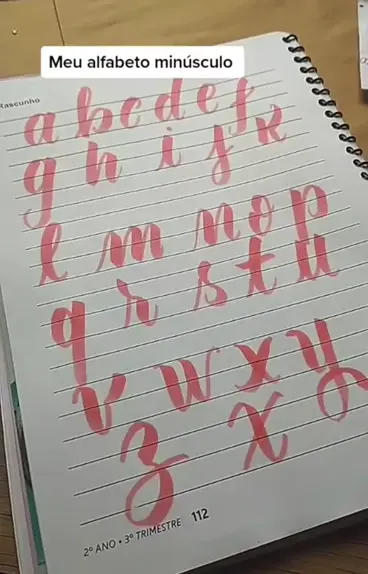 Meu alfabeto minúsculo
Rascunho
a b c d e f
g h i j k
l m n o p
q r s t u
v w x y
z x
2º ANO • 3º TRIMESTRE 112